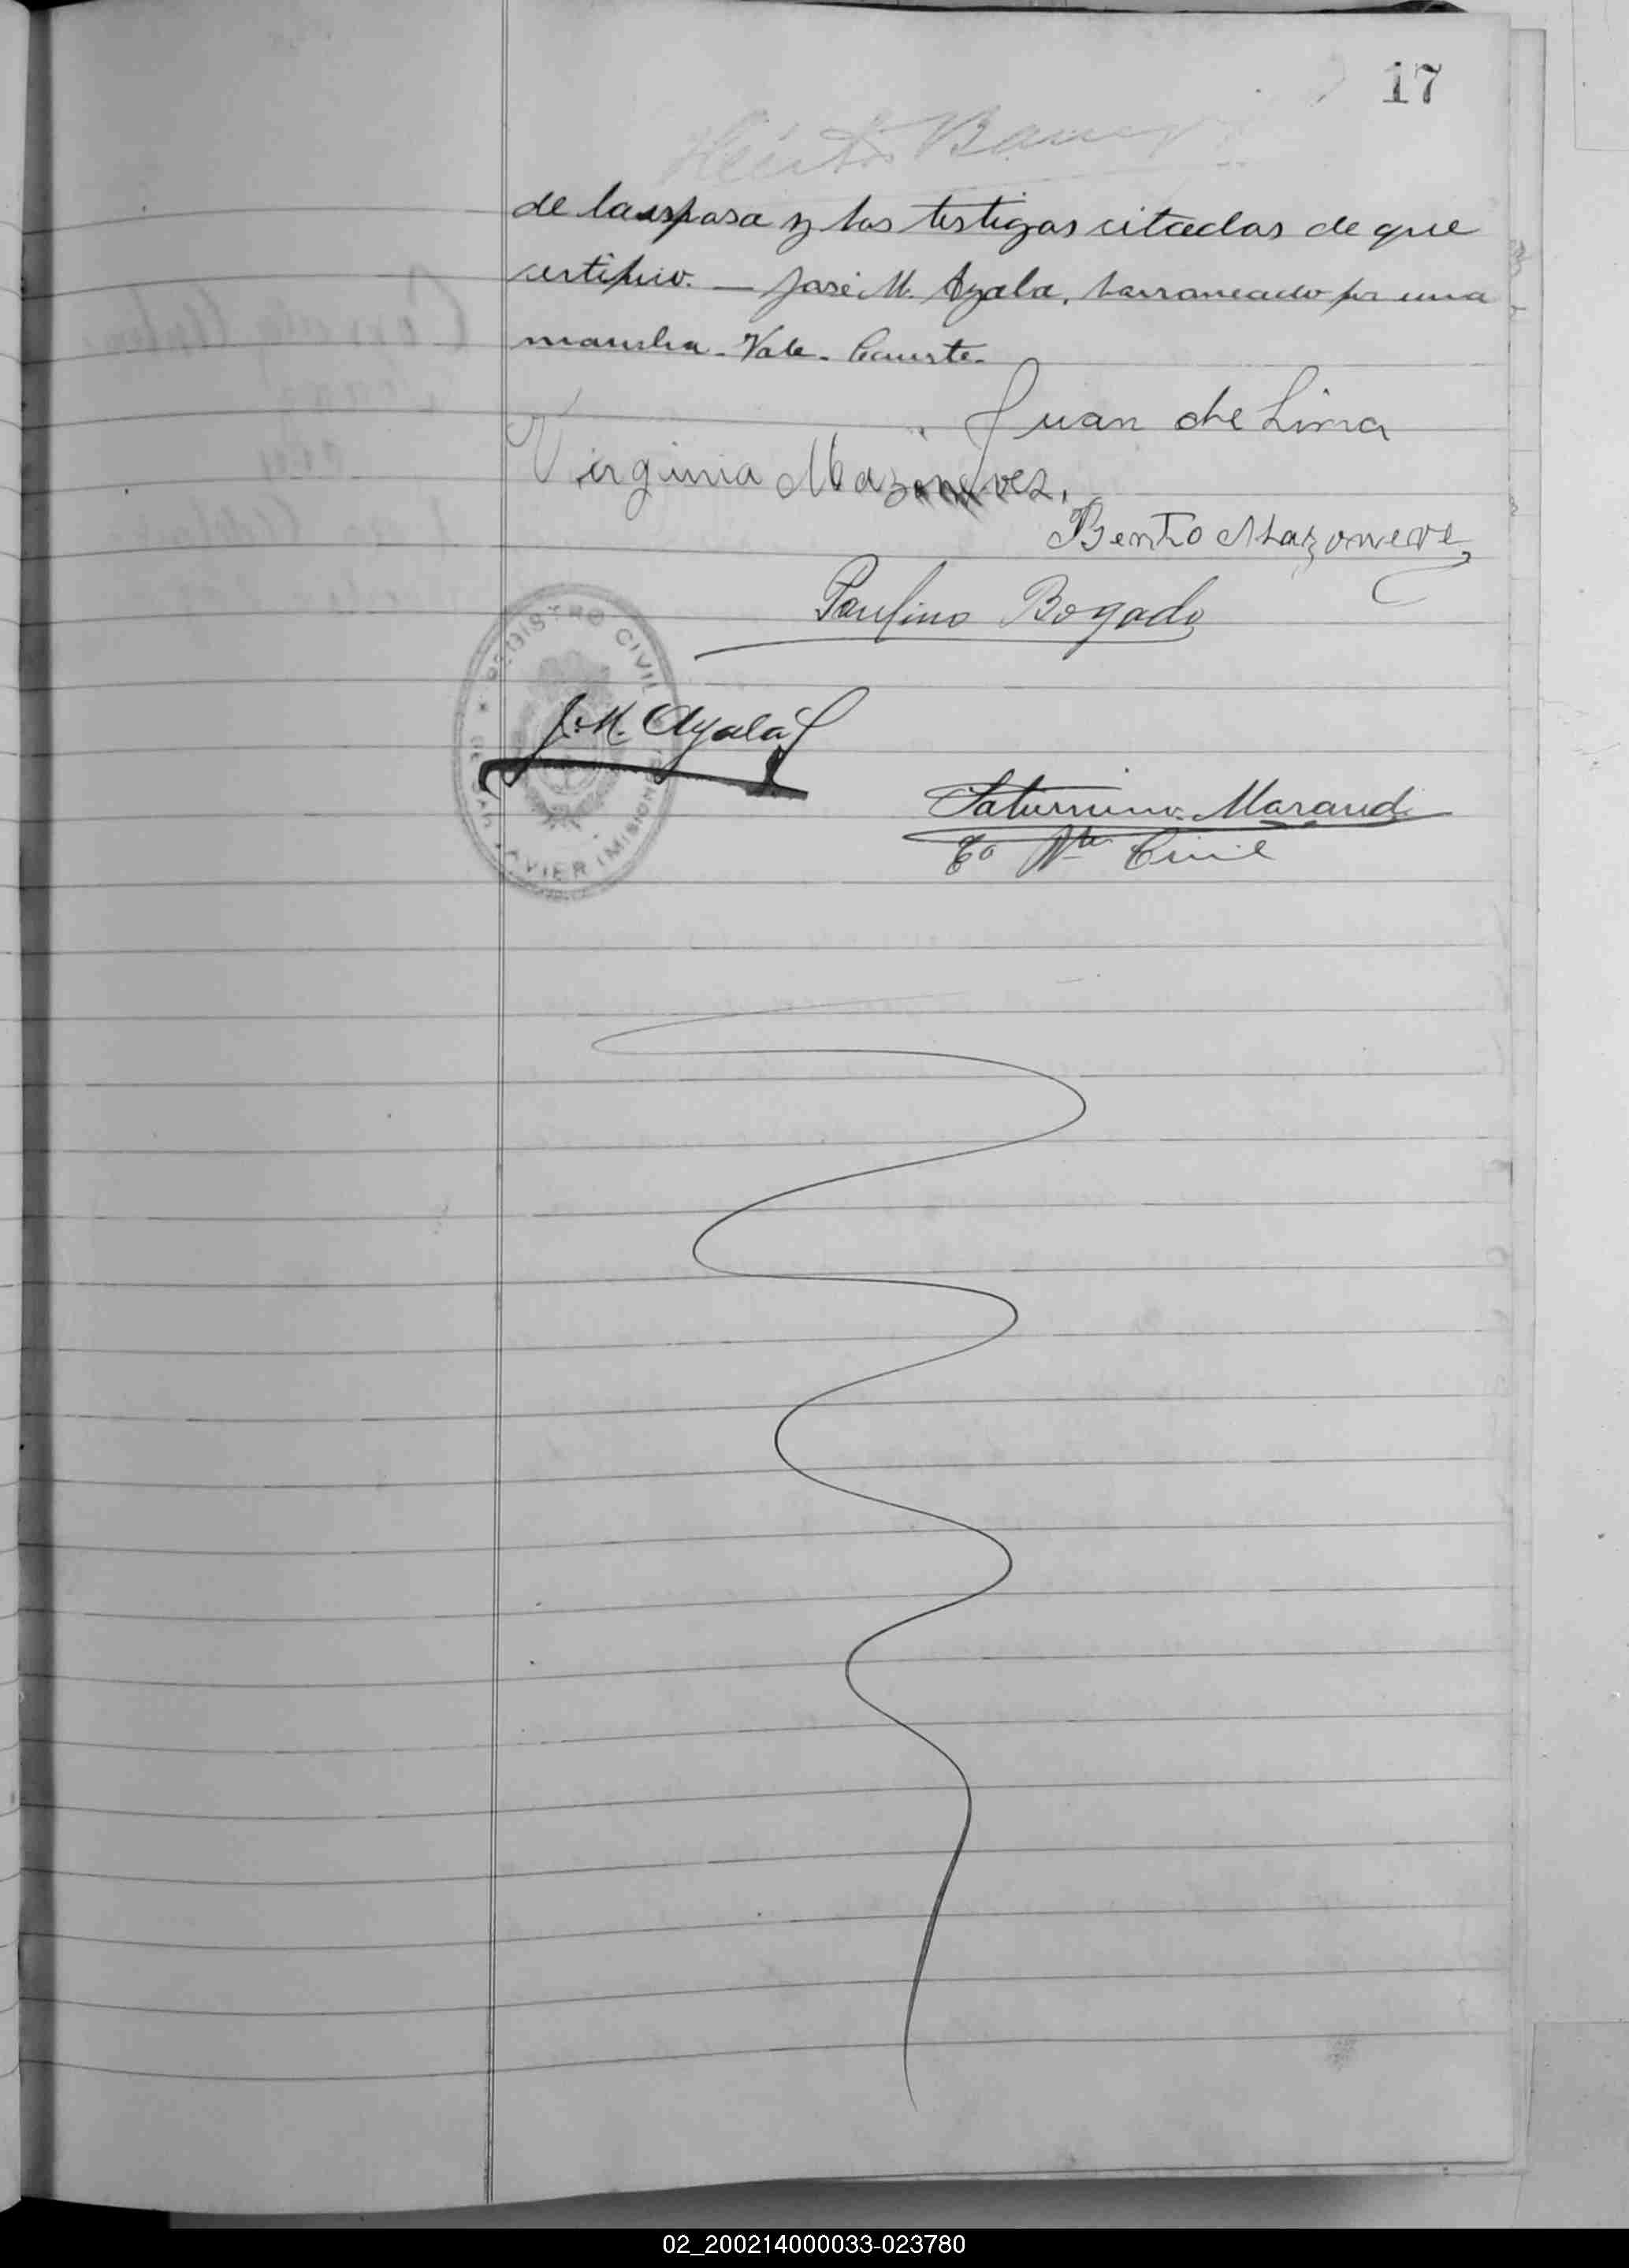 17
de la esposa y los testigos citados de que
certifico. — José M. Ayala, borroneado por una
mancha - Vale - Conste.-
Juan de Lima
Virginia
Bento
Paulino Bogado
REGISTRO CIVIL
DE SAN JAVIER (MISIONES)
J. M. Ayala
Saturnino
Civil
02_200214000033-023780